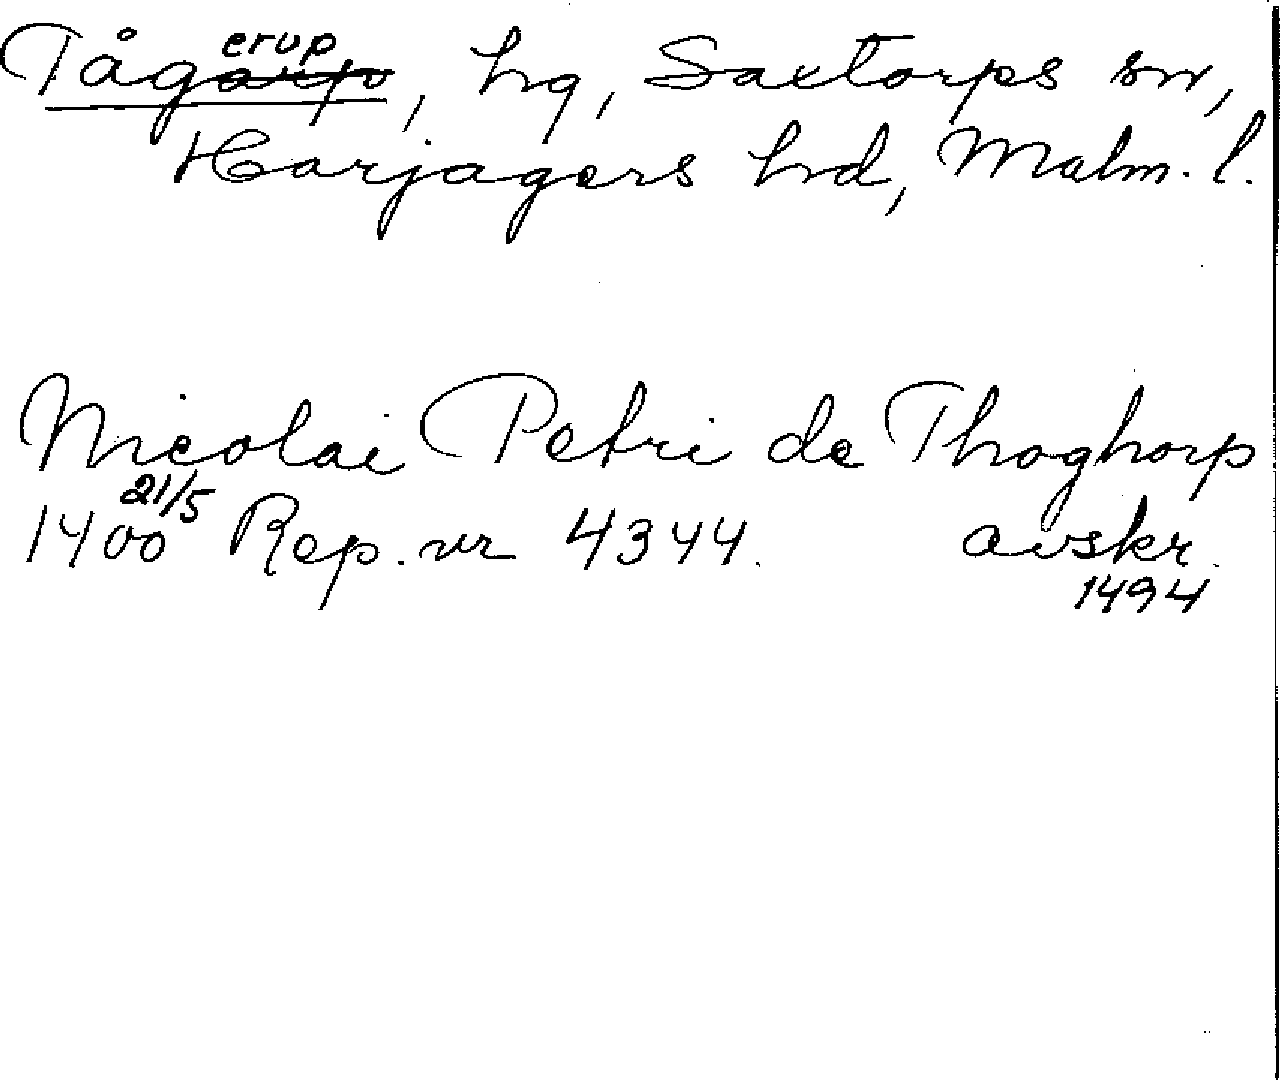 Tågerup, hg, Saxtorps sn,
Harjagers hd, Malm. l.
Nicolai Petri de Thoghorp
1400 21/5 Rep. nr 4344. avskr.
1494